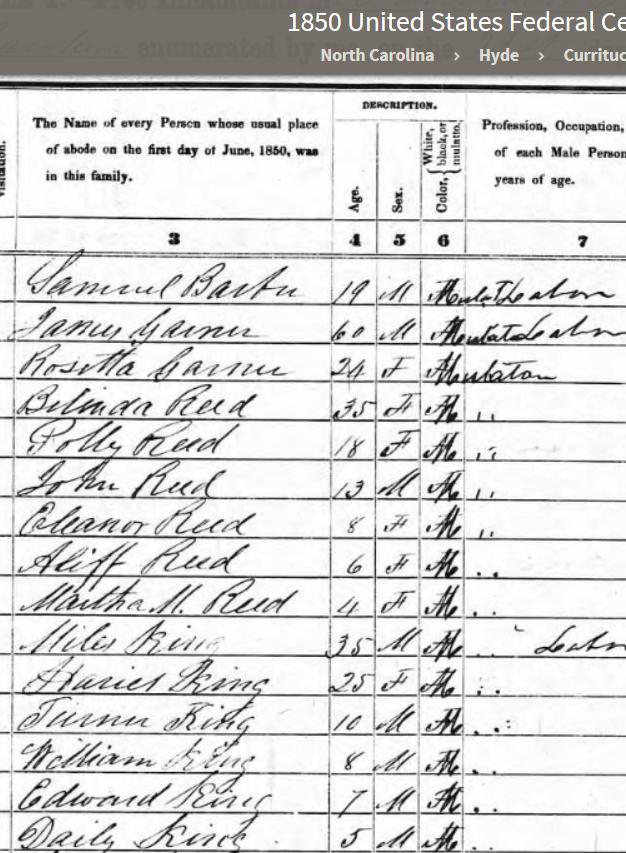 1850 United States Federal Ce
North Carolina › Hyde › Currituc
enumerated by
The Name of every Person whose usual place
of abode on the first day of June, 1850, was
in this family.
DESCRIPTION.
Age.
Sex.
Color, { White, black, or mulatto.
Profession, Occupation,
of each Male Person
years of age.
3 4 5 6 7
Samuel 19 M Mulat Labor
James Garner 60 M Mulatto Labor
Rosetta Garner 24 F Mulatto
Belinda Reed 35 F M "
Polly Reed 18 F M "
John Reed 13 M M "
Eleanor Reed 8 F M "
Aliff Reed 6 F M "
Martha M. Reed 4 F M "
Miles King 35 M M " Labor
Hariet King 25 F M "
Turner King 10 M M "
William King 8 M M "
Edward King 7 M M "
Daily King 5 M M "